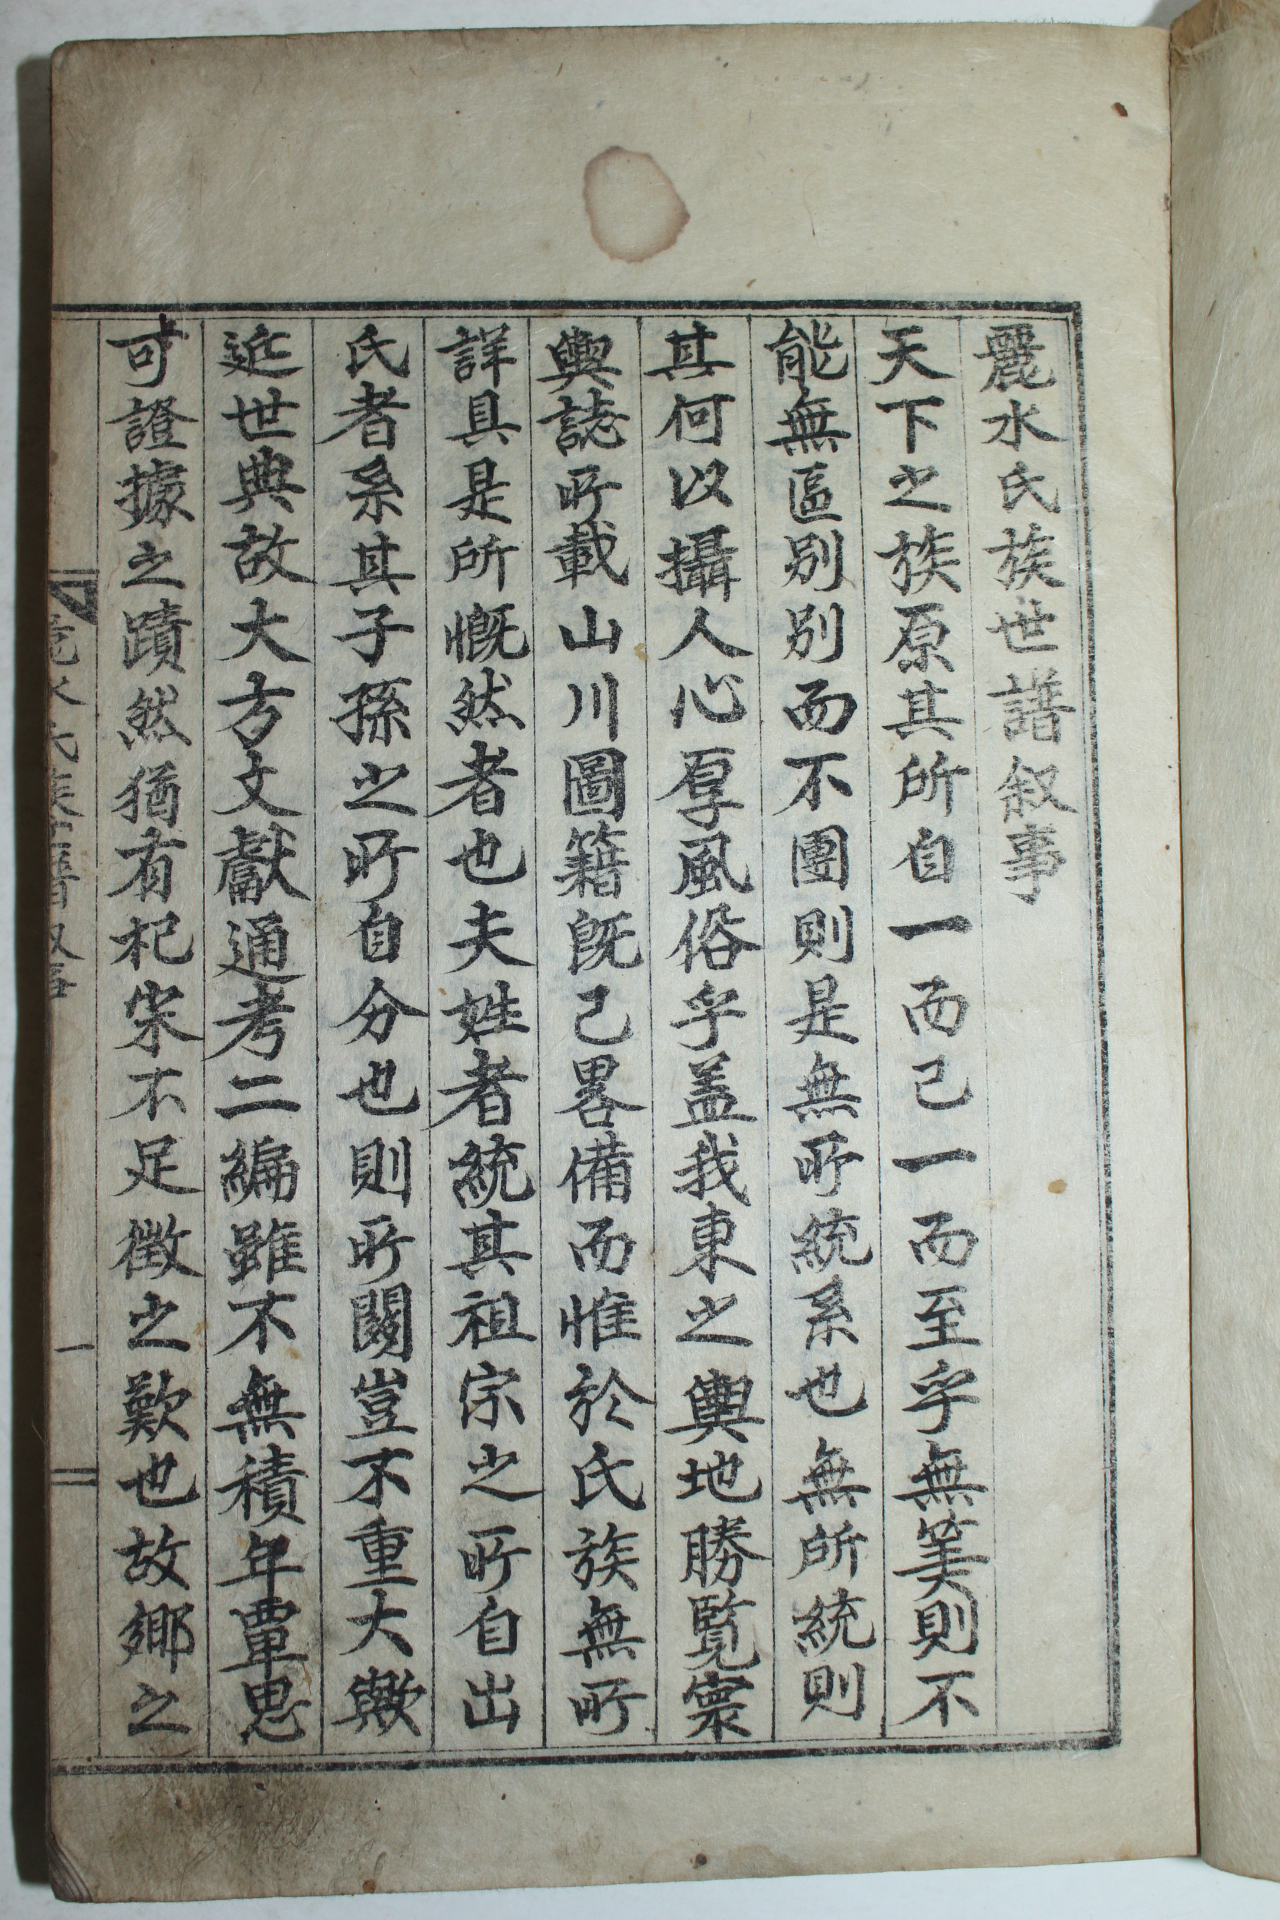 麗水氏族世譜叙事
天下之族原其所自一而已一而至乎無筭則不
能無區別別而不團則是無所統系也無所統則
其何以攝人心厚風俗乎盖我東之輿地勝覧寰
輿誌所載山川圖籍旣已畧備而惟於氏族無所
詳具是所慨然者也夫姓者統其祖宗之所自出
氏者系其子孫之所自分也則所關豈不重大歟
近世典故大方文獻通考二編雖不無積年覃思
可證據之蹟然猶有杞宋不足徵之歎也故鄉之
水氏族世譜叙事
一